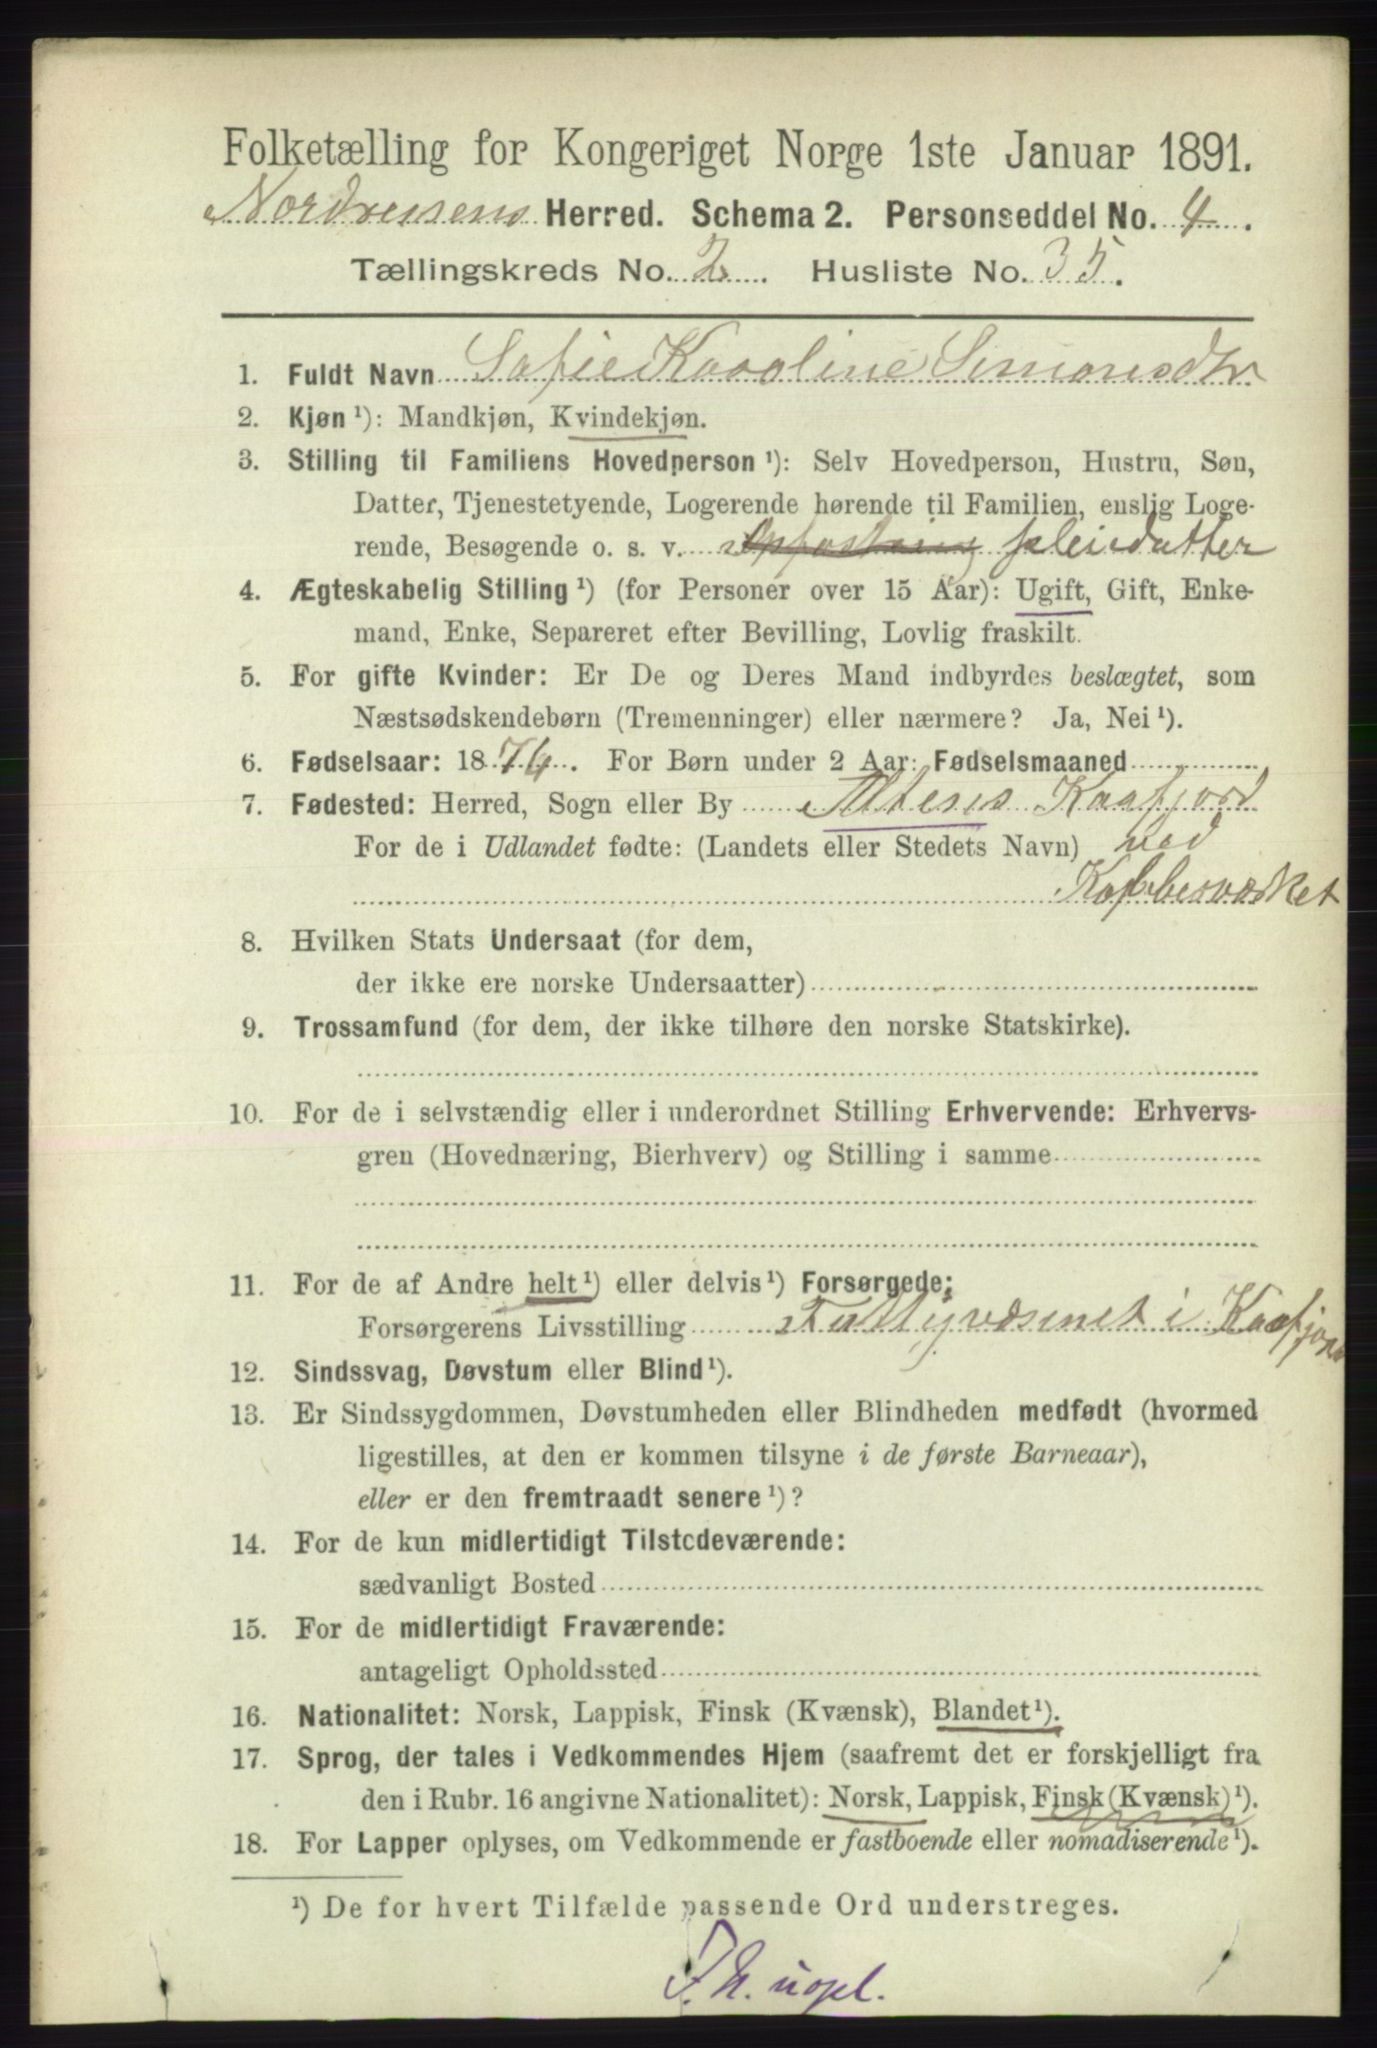 Folketælling for Kongeriget Norge 1ste Januar 1891.
Nordreisens Herred. Schema 2. Personseddel No. 4.
Tællingskreds No. 2. Husliste No. 35.
1. Fuldt Navn Sofie Karoline Simonsdtr
2. Kjøn ¹): Mandkjøn, Kvindekjøn.
3. Stilling til Familiens Hovedperson ¹): Selv Hovedperson, Hustru, Søn,
Datter, Tjenestetyende, Logerende hørende til Familien, enslig Loge-
rende, Besøgende o. s. v. pleiedatter
4. Ægteskabelig Stilling ¹) (for Personer over 15 Aar): Ugift, Gift, Enke-
mand, Enke, Separeret efter Bevilling, Lovlig fraskilt.
5. For gifte Kvinder: Er De og Deres Mand indbyrdes beslægtet, som
Næstsødskendebørn (Tremenninger) eller nærmere? Ja, Nei ¹).
6. Fødselsaar: 1874. For Børn under 2 Aar: Fødselsmaaned
7. Fødested: Herred, Sogn eller By Altens Kaafjord
For de i Udlandet fødte: (Landets eller Stedets Navn) ved
Kobberværket
8. Hvilken Stats Undersaat (for dem,
der ikke ere norske Undersaatter)
9. Trossamfund (for dem, der ikke tilhøre den norske Statskirke).
10. For de i selvstændig eller i underordnet Stilling Erhvervende: Erhvervs-
gren (Hovednæring, Bierhverv) og Stilling i samme
11. For de af Andre helt ¹) eller delvis ¹) Forsørgede:
Forsørgerens Livsstilling Fattigvæsenet i Kaafjord
12. Sindssvag, Døvstum eller Blind ¹).
13. Er Sindssygdommen, Døvstumheden eller Blindheden medfødt (hvormed
ligestilles, at den er kommen tilsyne i de første Barneaar),
eller er den fremtraadt senere ¹)?
14. For de kun midlertidigt Tilstedeværende:
sædvanligt Bosted
15. For de midlertidigt Fraværende:
antageligt Opholdssted
16. Nationalitet: Norsk, Lappisk, Finsk (Kvænsk), Blandet ¹).
17. Sprog, der tales i Vedkommendes Hjem (saafremt det er forskjelligt fra
den i Rubr. 16 angivne Nationalitet): Norsk, Lappisk, Finsk (Kvænsk) ¹).
18. For Lapper oplyses, om Vedkommende er fastboende eller nomadiserende ¹).
¹) De for hvert Tilfælde passende Ord understreges.